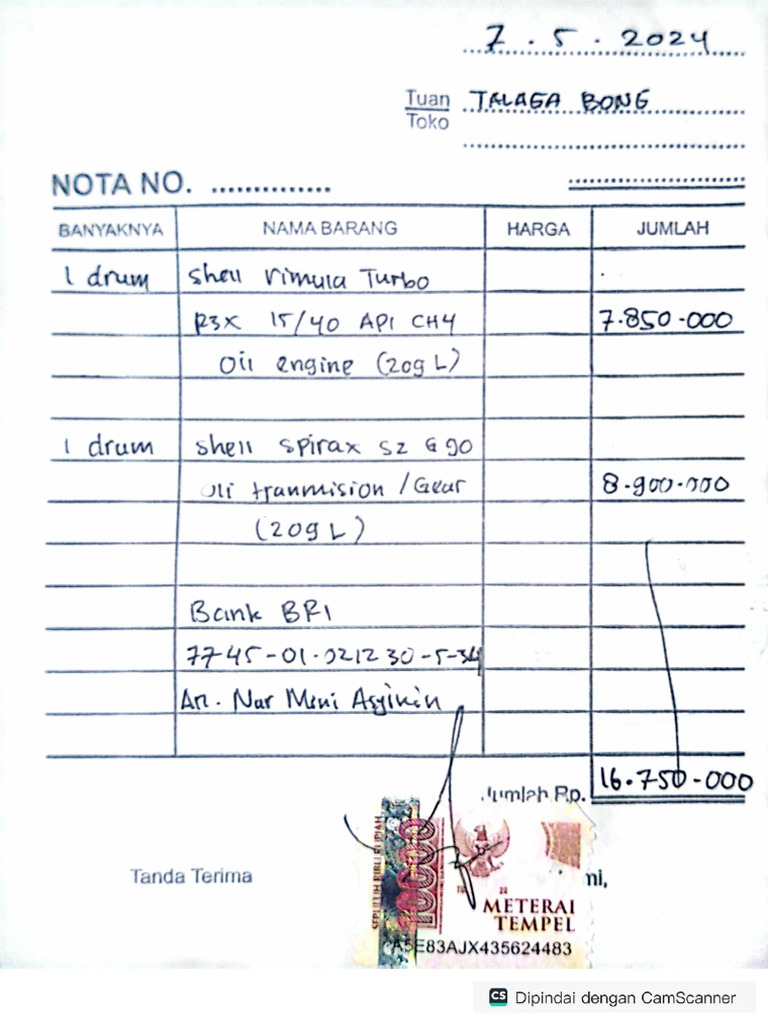 7 . 5 . 2024
Tuan
Toko
TALAGA BONG
NOTA NO. ..............
BANYAKNYA NAMA BARANG HARGA JUMLAH
1 drum shell Rimula Turbo
R3X 15/40 API CH4 7.850.000
Oil engine (209 L)
1 drum shell spirax S2 G 90
Oli tranmision / Gear 8.900.000
(209 L)
Bank BRI
7745-01-021230-5-34
An. Nur Meni Asyikin
Jumlah Rp. 16.750.000
Tanda Terima
mi,
SEPULUH RIBU RUPIAH
10000
METERAI
TEMPEL
A5E83AJX435624483
CS Dipindai dengan CamScanner